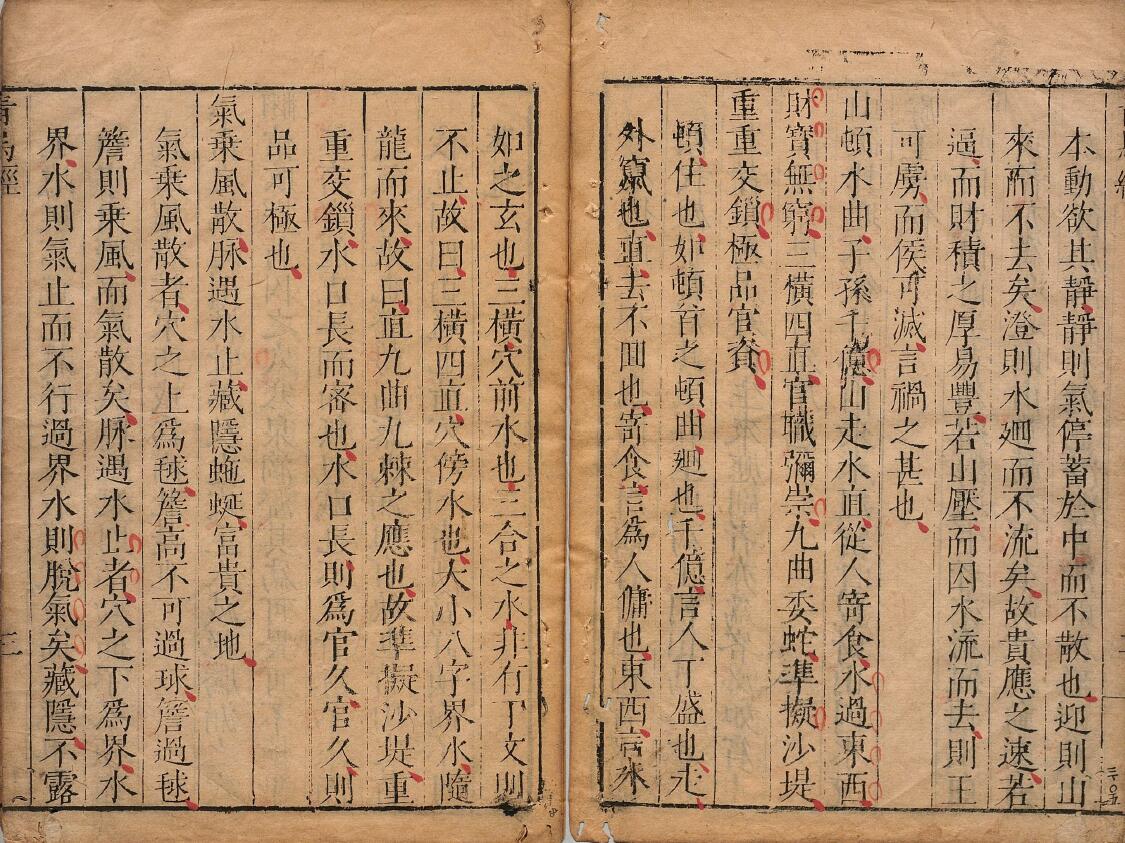 本動欲其靜靜則氣停蓄於中而不散也迎則山
來而不去矣澄則水廻而不流矣故貴應之速若
逼而財積之厚易豐若山壓而囚水流而去則王
可虜而侯可滅言禍之甚也
山頓水曲子孫千億山走水直從人寄食水過東西
財寶無窮三橫四直官職彌崇九曲委蛇準擬沙堤
重重交鎖極品官資
頓住也如頓首之頓曲廻也千億言人丁盛也走
外竄也直去不囬也寄食言爲人傭也東西言朱
如之玄也三橫穴前水也三合之水非有丁文則
不止故曰三橫四直穴傍水也大小八字界水隨
龍而來故曰直九曲九棘之應也故準擬沙堤重
重交鎖水口長而密也水口長則爲官久官久則
品可極也
氣乗風散脉遇水止藏隱蜿蜒富貴之地
氣乗風散者穴之上爲毬簷高不可過球簷過毬
簷則乗風而氣散矣脉遇水止者穴之下爲界水
界水則氣止而不行過界水則脫氣矣藏隱不露
青烏經
三